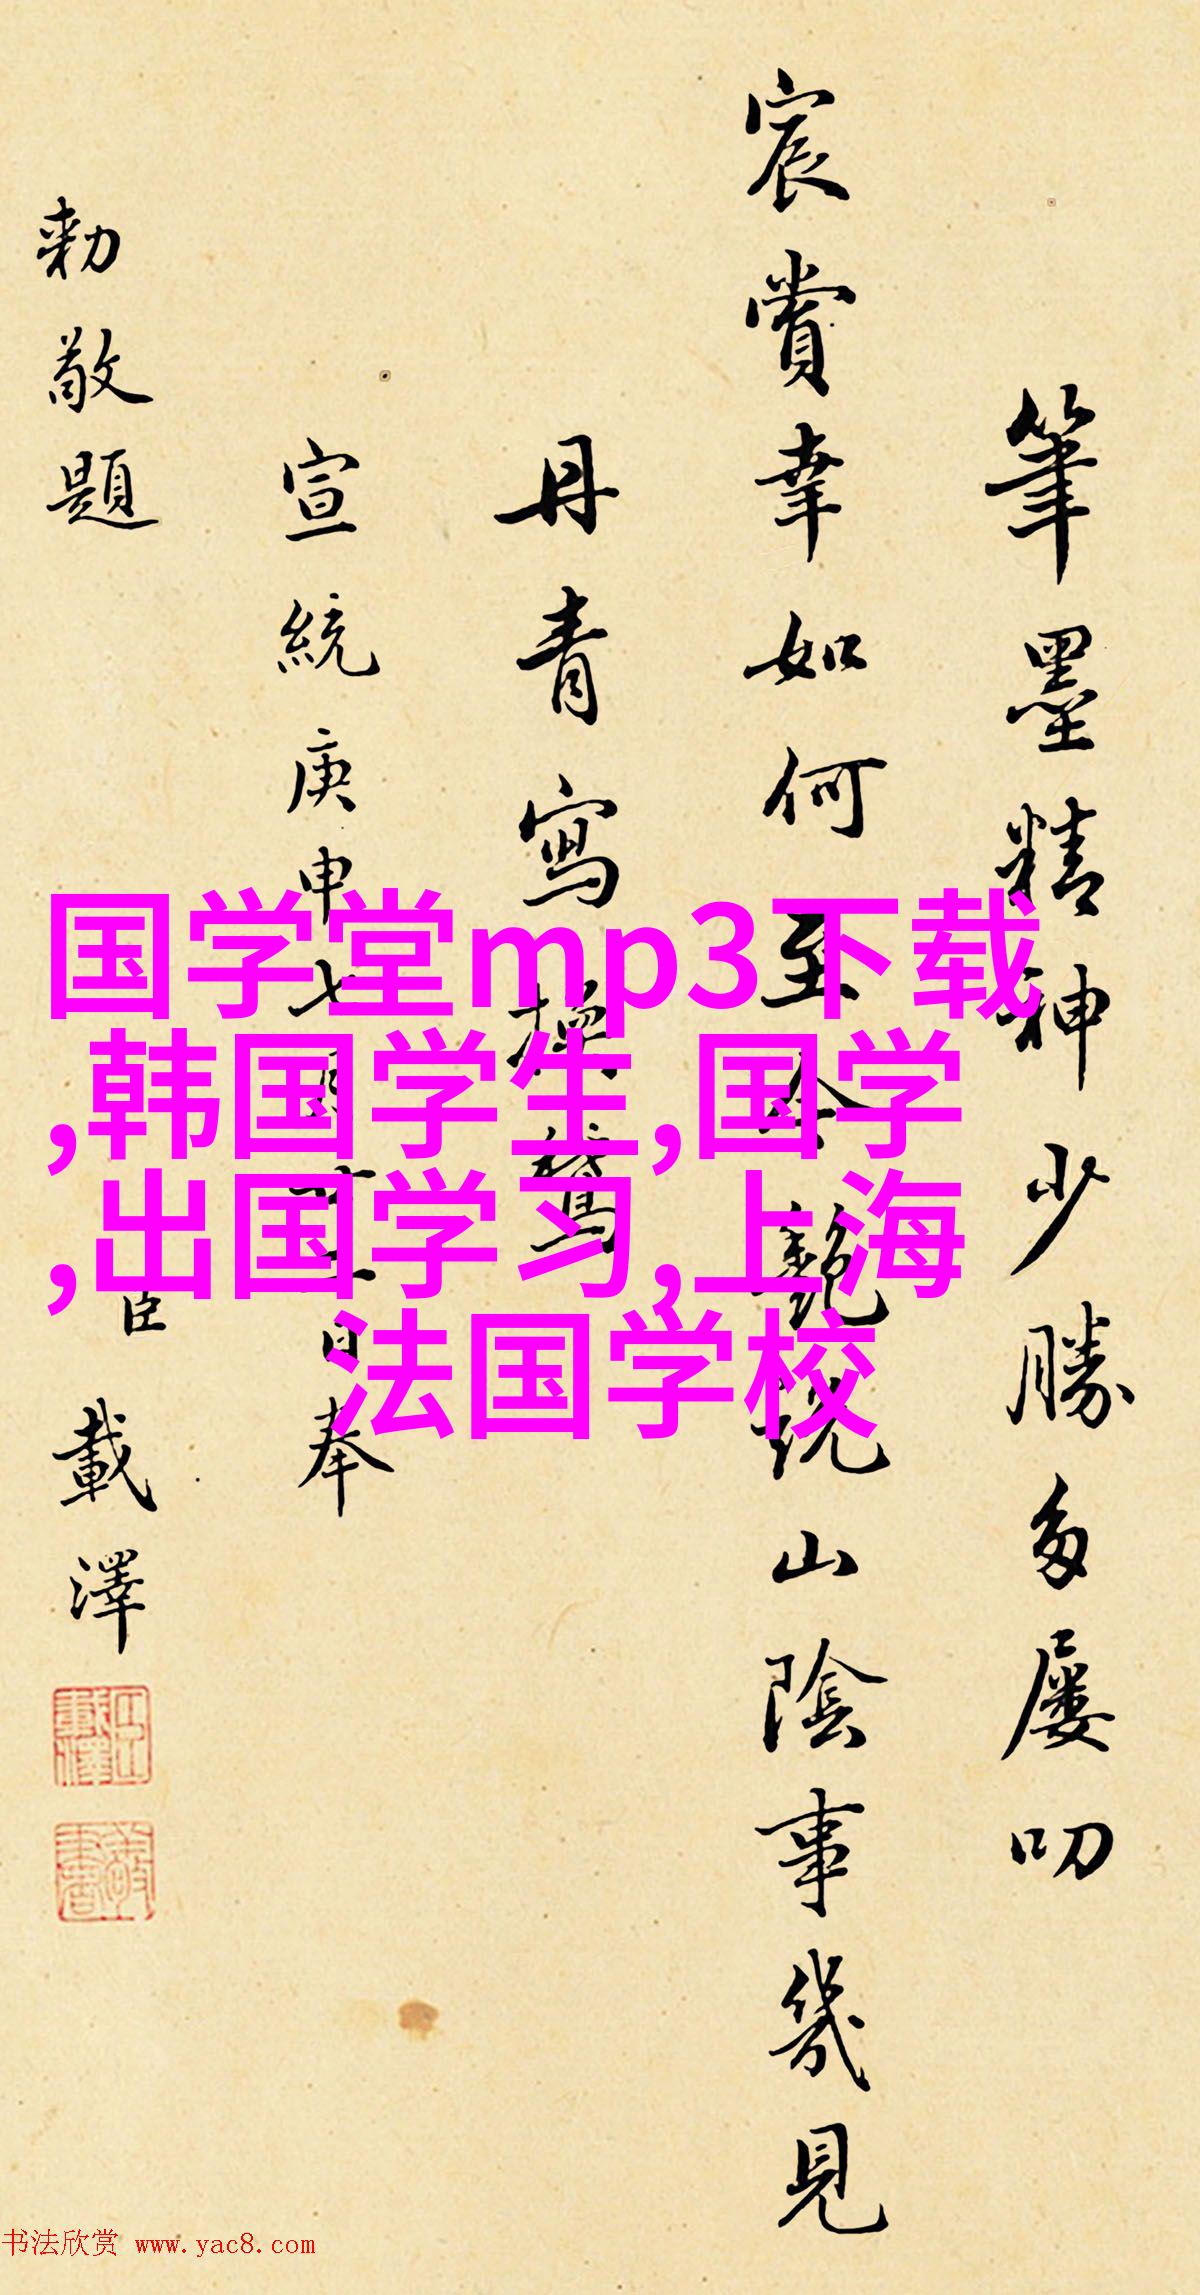 筆墨精神少勝多屢叨
宸賞幸如何至今艷說山陰事幾見
丹青寫換鵞
宣統庚申七月廿二日奉
勅敬題
臣 載澤
国学堂mp3下载
,韩国学生,国学
,出国学习,上海
法国学校
书法欣赏 www.yac8.com